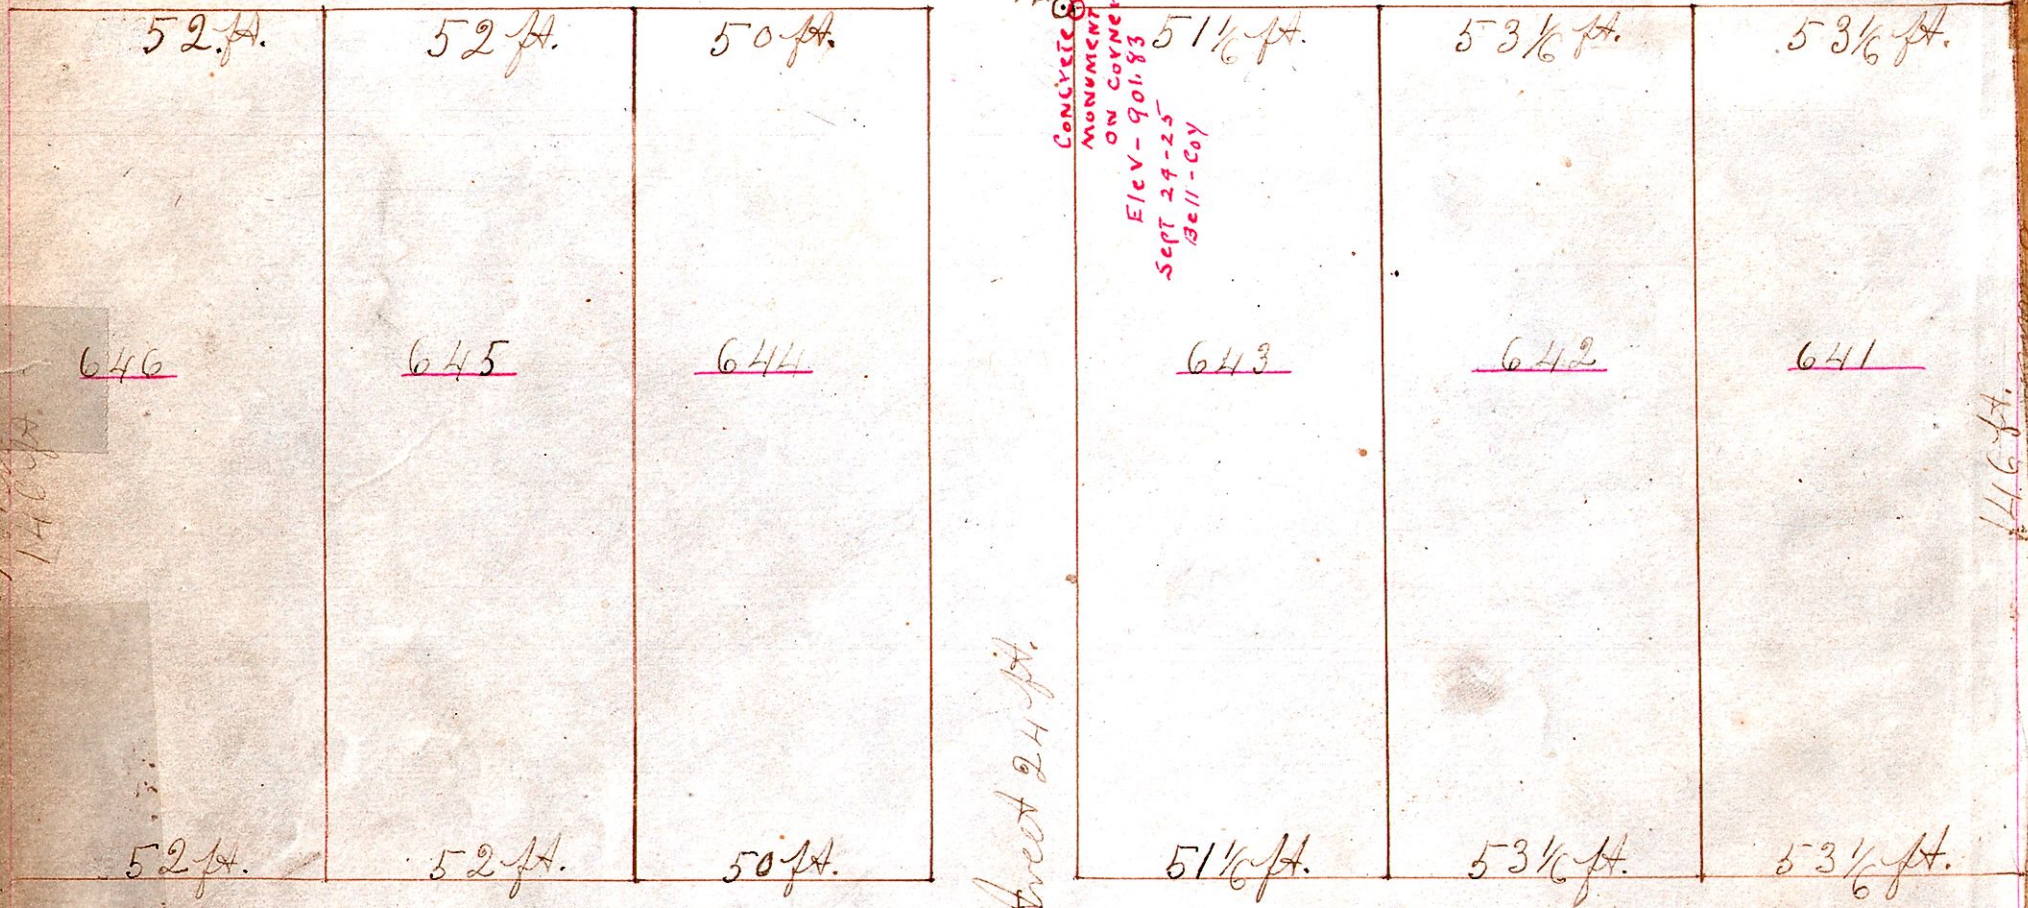 52 ft.
52 ft.
50 ft.
51 1/6 ft.
53 1/6 ft.
53 1/6 ft.
Concrete
Monument
on Corner
Elev - 901.83
Sept 24-25
Bell-Coy
646
645
644
643
642
641
146 ft.
146 ft.
Street 24 ft.
52 ft.
52 ft.
50 ft.
51 1/6 ft.
53 1/6 ft.
53 1/6 ft.